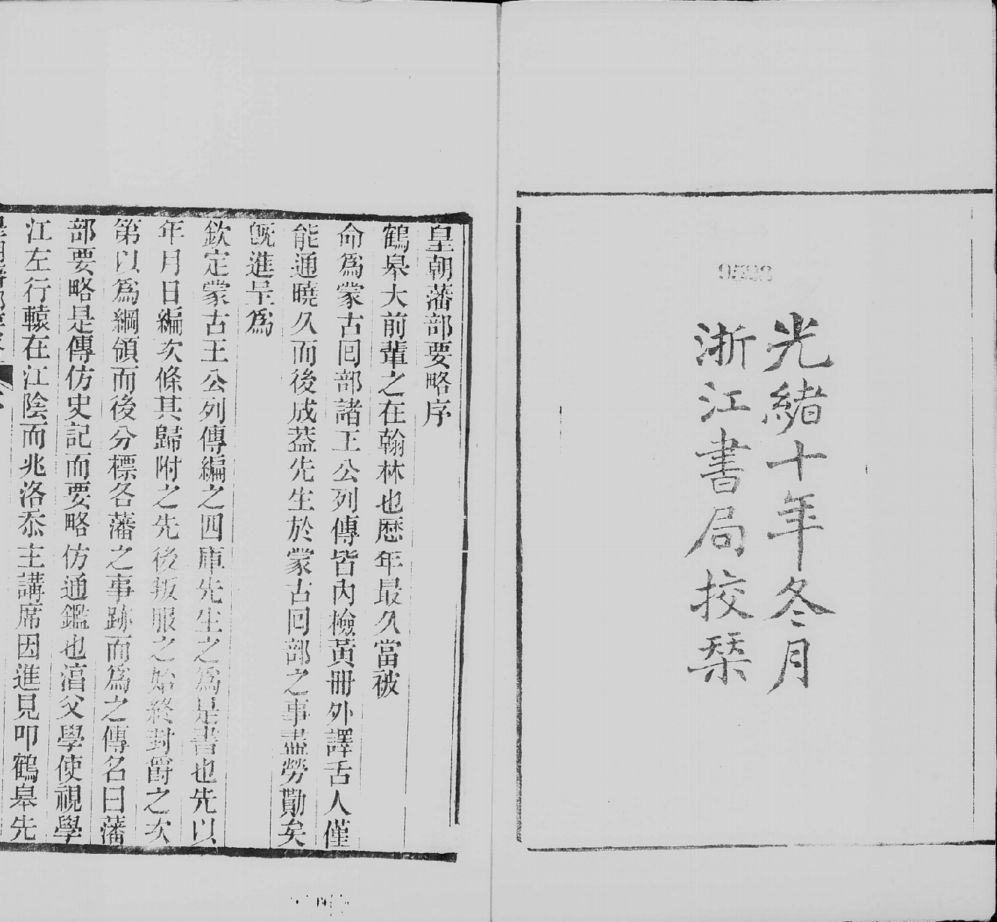 光緒十年冬月
浙江書局校栞
皇朝藩部要略序
鶴皋大前輩之在翰林也歷年最久當被
命為蒙古回部諸王公列傳皆內檢黃冊外譯舌人僅
能通曉久而後成葢先生於蒙古回部之事盡勞勩矣
旣進呈為
欽定蒙古王公列傳編之四庫先生之為是書也先以
年月日編次條其歸附之先後叛服之始終封爵之次
第以為綱領而後分標各藩之事跡而為之傳名曰藩
部要略是傳仿史記而要略仿通鑑也㵙父學使視學
江左行轅在江陰而兆洛忝主講席因進見叩鶴皋先
皇朝藩部要略